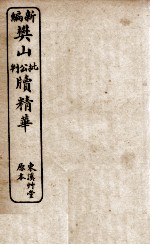 新編樊山批判公牘精華
東溪艸堂
原本